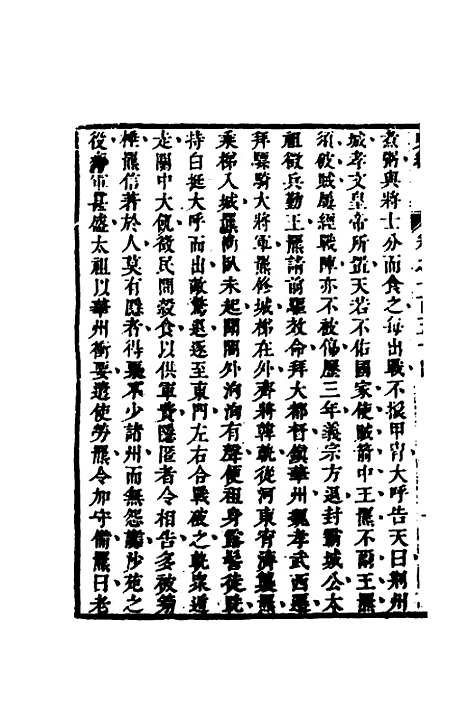 煮粥與將士分而食之每出戰不擐甲冑大呼告天曰荊州
城孝文皇帝所置天若不佑國家使賊箭中王羆不爾王羆
須破賊屢經戰陣亦不被傷歷三年義宗方退封霸城公太
祖徵兵勤王羆請前驅效命拜大都督鎮華州魏孝武西遷
拜驃騎大將軍羆修城梯在外齊將韓軌從河東宵濟襲羆
乘梯入城羆尚臥未起聞閤外洶洶有聲便袒身露髻徒跣
持白挺大呼而出敵驚退逐至東門左右合戰破之軌衆遁
走關中大飢徵民間穀食以供軍費隱匿者令相告多被篣
棰羆信著於人莫有隱者得粟不少諸州而無怨讟沙苑之
役齊軍甚盛太祖以華州衝要遣使勞羆令加守備羆曰老